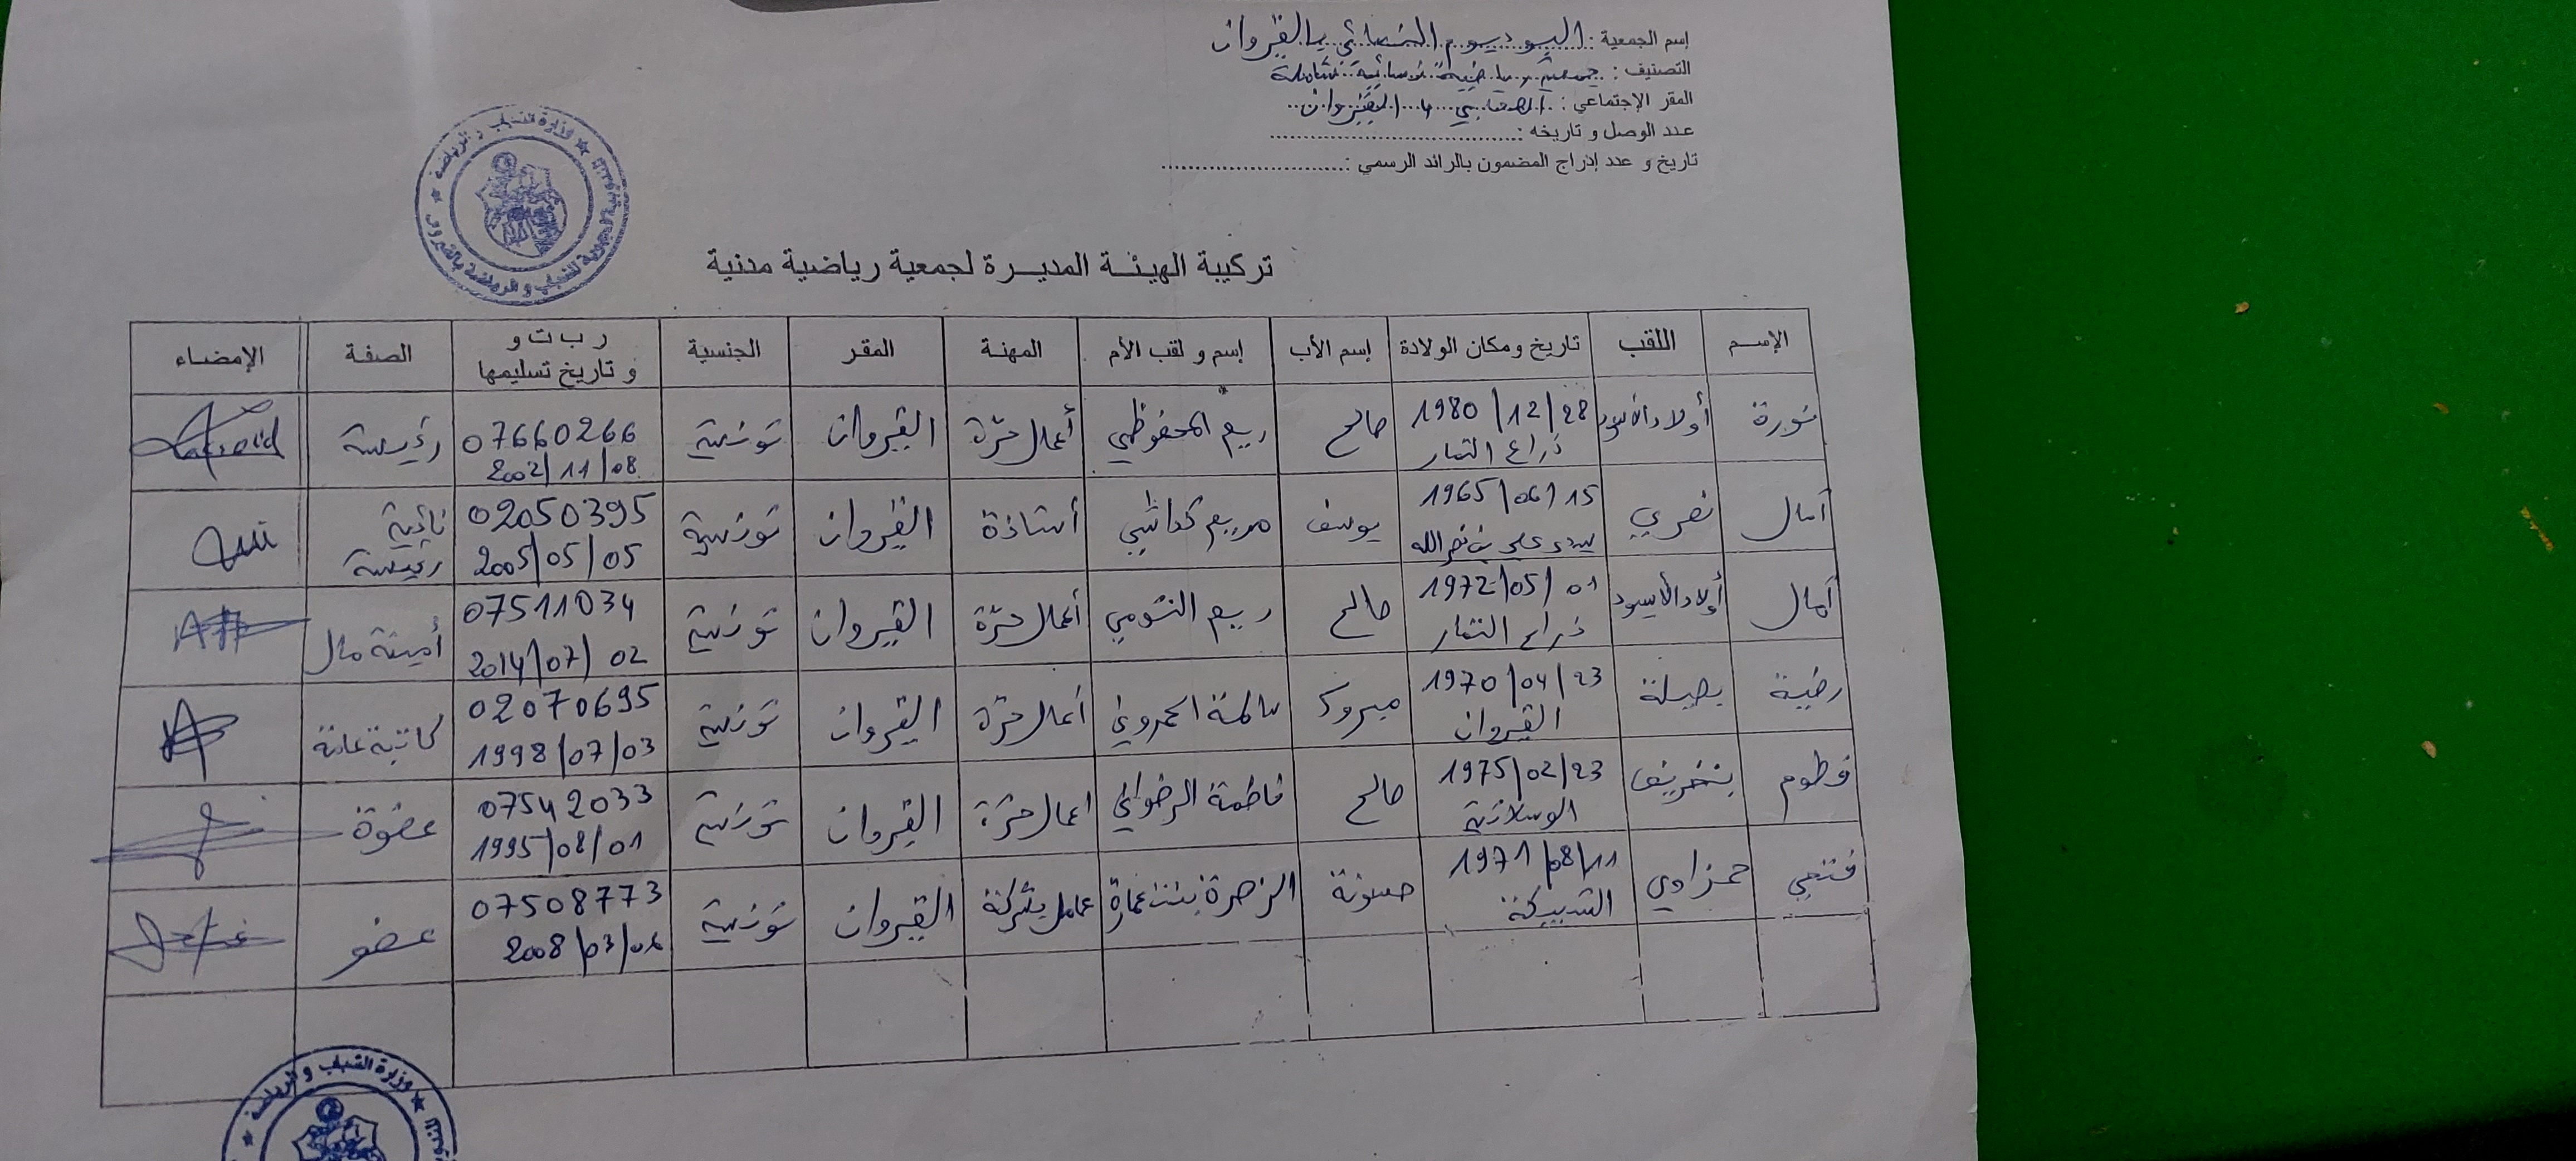 إسم الجمعية : البوديوم النسائي بالقيروان
التصنيف : جمعية رياضية نسائية شاملة
المقر الإجتماعي : بالقيروان
عدد الوصل و تاريخه :
تاريخ و عدد إدراج المضمون بالرائد الرسمي :
وزارة الشباب و الرياضة
المندوبية الجهوية للشباب و الرياضة بالقيروان
تركيبة الهيئة المديرة لجمعية رياضية مدنية
الإسم اللقب تاريخ ومكان الولادة إسم الأب إسم و لقب الأم المهنة المقر الجنسية ر ب ت و و تاريخ تسليمها الصفة الإمضاء
نورة أولاد الأسود 1980/12/28 ذراع التمار صالح ريم المحفوظي أعمال حرة القيروان تونسية 07660266 2002/11/08 رئيسة
آمال نصري 1965/06/15 سيدي علي بن نصرالله يوسف مريم أستاذة القيروان تونسية 02050395 2005/05/05 نائبة رئيسة
آمال أولاد الأسود 1972/05/01 ذراع التمار صالح ريم أعمال حرة القيروان تونسية 07511034 2014/07/02 أمينة مال
رضية بصيلة 1970/04/23 القيروان مبروك سالمة الحمروني أعمال حرة القيروان تونسية 02070695 1998/07/03 كاتبة عامة
فطوم بنخريف 1975/02/23 الوسلاتية صالح فاطمة الرضواني اعمال حرة القيروان تونسية 07542033 1995/08/01 عضوة
فتحي حمزاوي 1971/08/11 الشبيكة حسونة الزهرة بنت عمارة عامل بشركة القيروان تونسية 07508773 2008/03/06 عضو
وزارة الشباب و الرياضة